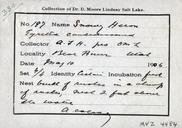 Collection of Dr. D. Moore Lindsay Salt Lake.
No 187 Name Snowy Heron
Egretta candidissima
Collector A.T.H. pro
Locality Bear River Utah
Date May 10 1906
Set Identity Certain Incubation fresh
Nest built of rushes in a clump
of rushes 2 feet above
the water
A colony
MVZ 4484